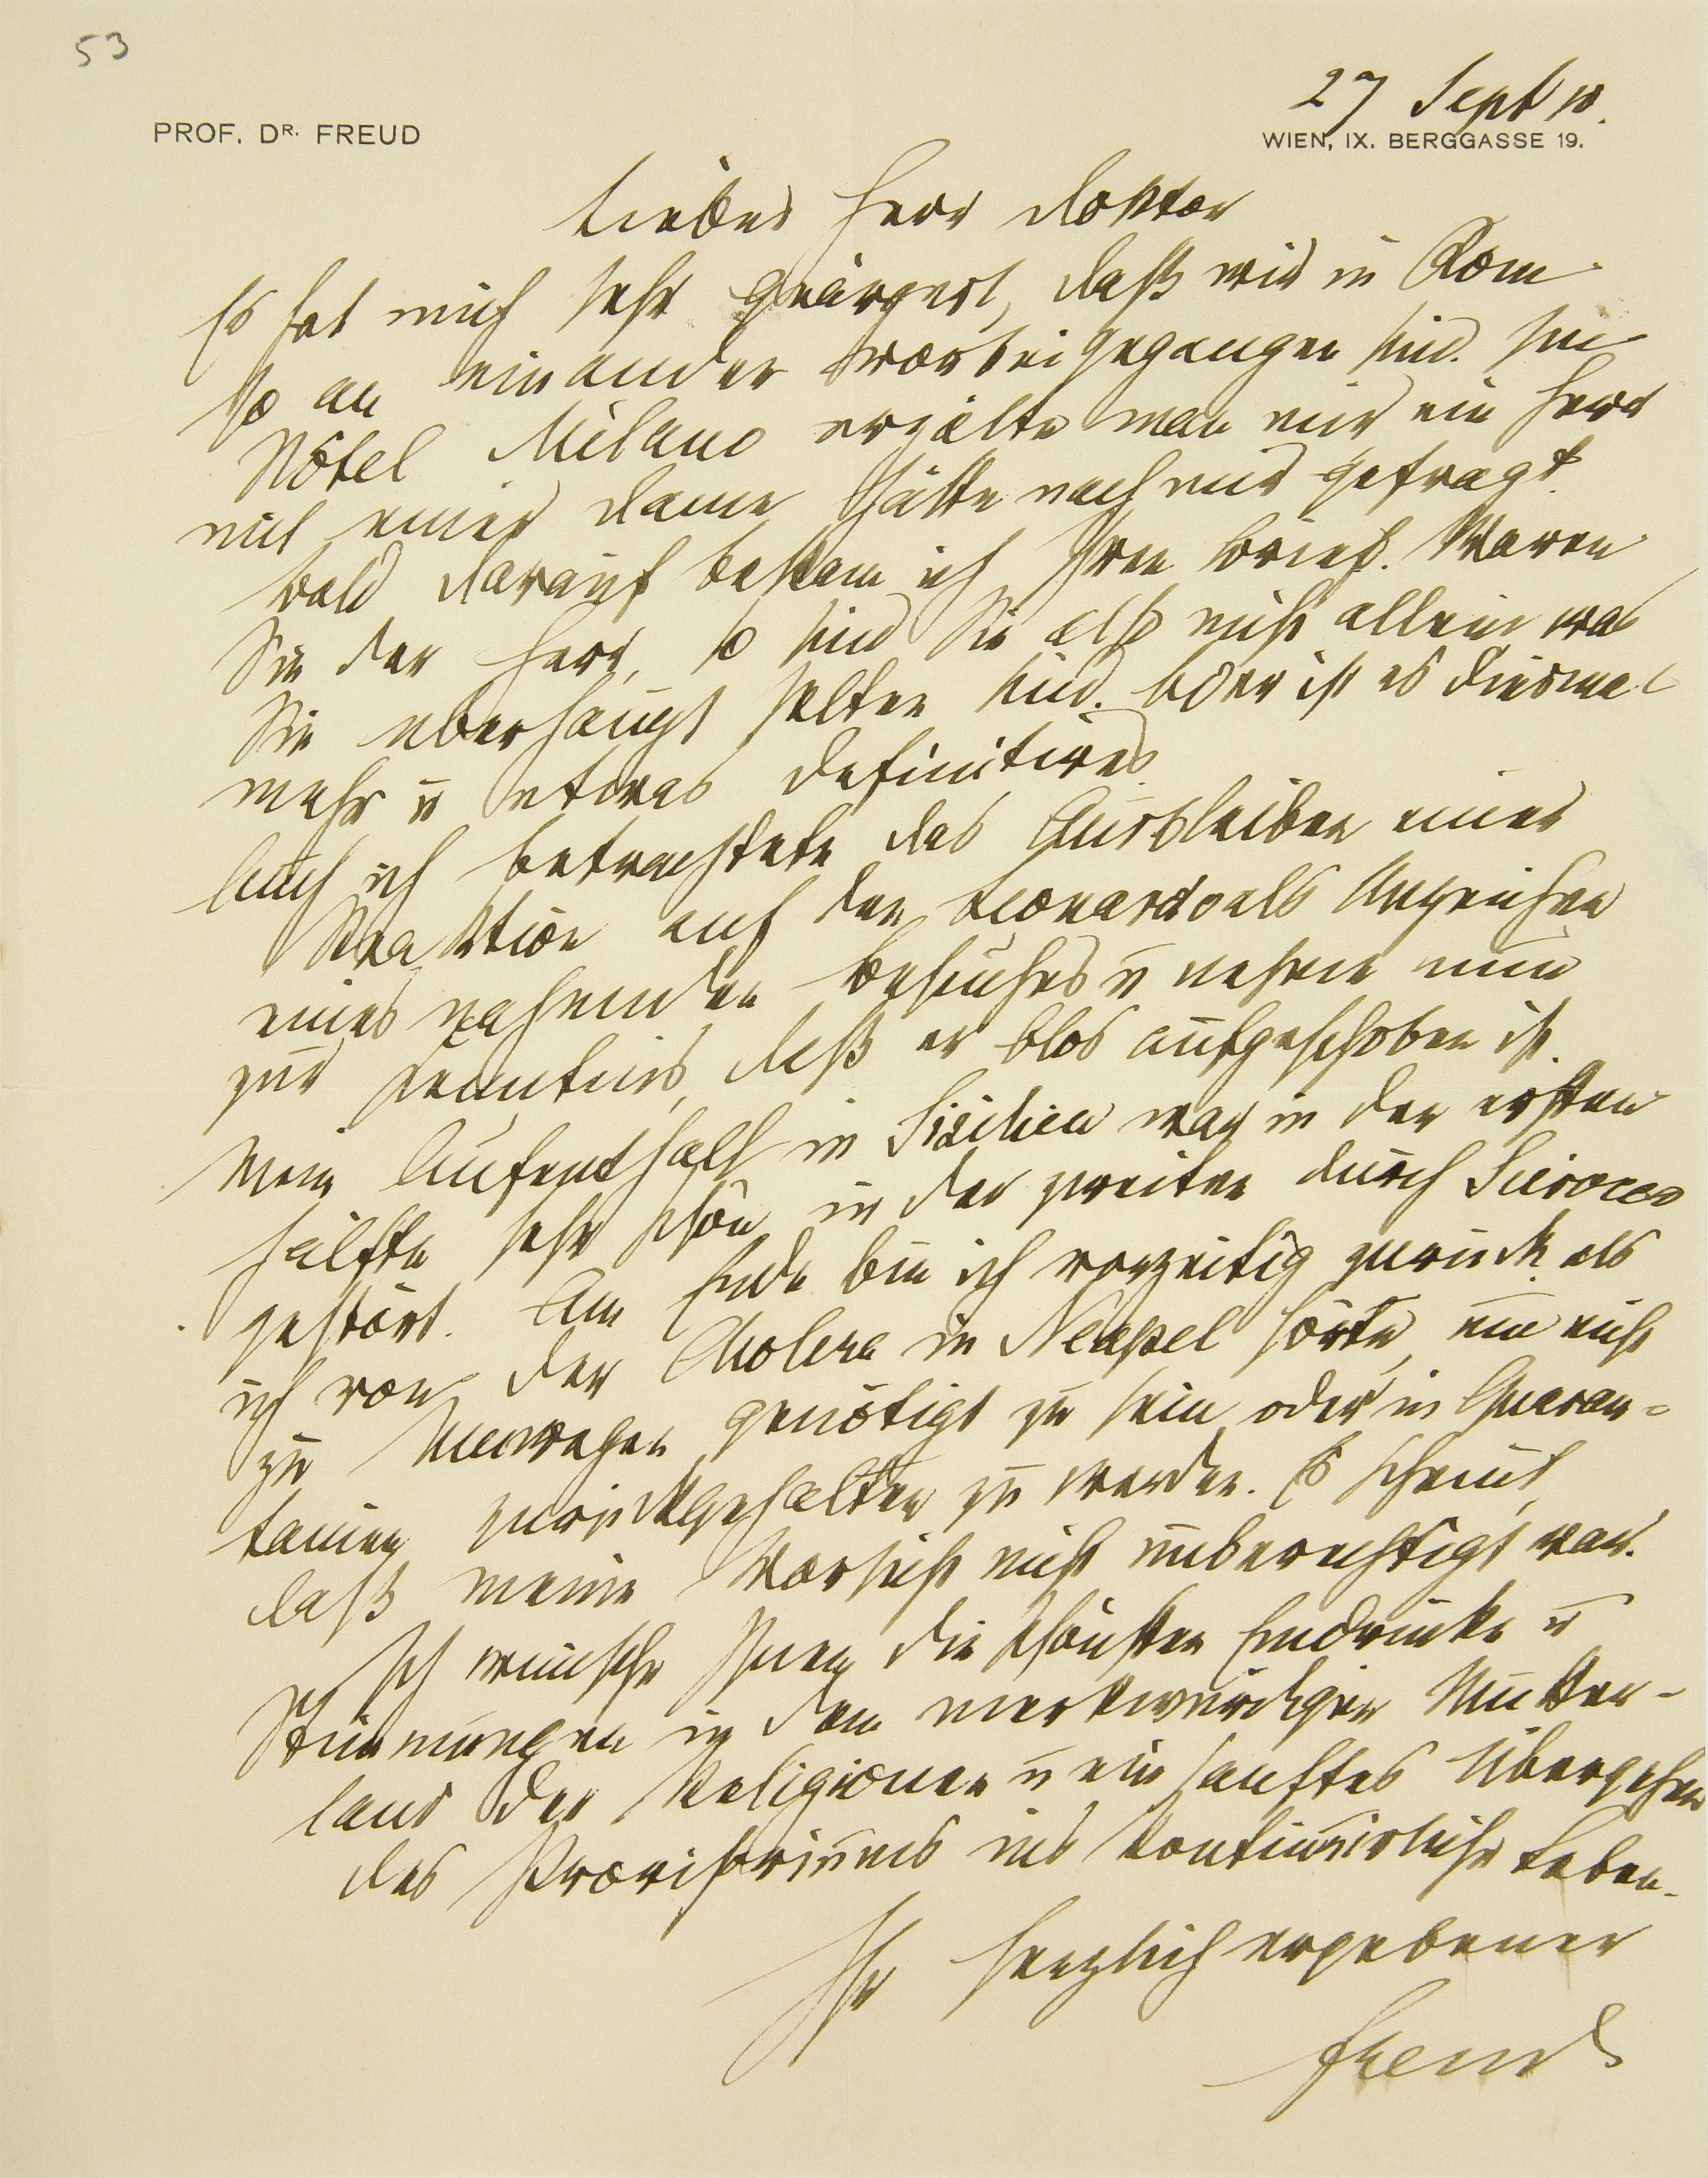 53
27 Sept 10.
PROF. DR. FREUD
WIEN, IX. BERGGASSE 19.
Lieber Herr Doktor
Es hat mich sehr geärgert, daß wir in Rom
so an einander vorbeigegangen sind. Im
Hôtel Milano erzälte man mir ein Herr
mit einer Dame hätte nach mir gefragt.
Bald darauf bekam ich Ihren Brief. Waren
Sie der Herr, so sind Sie also nicht allein was
Sie überhaupt selten sind. Oder ist es diesmal
mehr u etwas Definitives
Auch ich betrachtete das Ausbleiben einer
Reaktion auf den Leonardo als Anzeichen
eines nahenden Besuches u nehme nun
zur Kenntnis, daß er blos aufgeschoben ist.
Mein Aufenthalt in Sicilien war in der ersten
Hälfte sehr schön, in der zweiten durch Scirocco
gestört. Am Ende bin ich vorzeitig zurück als
ich von der Cholera in Neapel hörte, um nicht
zu Umwegen genötigt zu sein oder in Quaran=
tainen zurückgehalten zu werden. Es scheint,
daß meine Vorsicht nicht unberechtigt war.
Ich wünsche Ihnen die schönsten Eindrücke u
Stimmungen in dem merkwürdigen Mutter-
land der Religionen u ein sanftes Übergehen
des Provisoriums ins kontinuirliche Leben.
Ihr herzlich ergebener
Freud